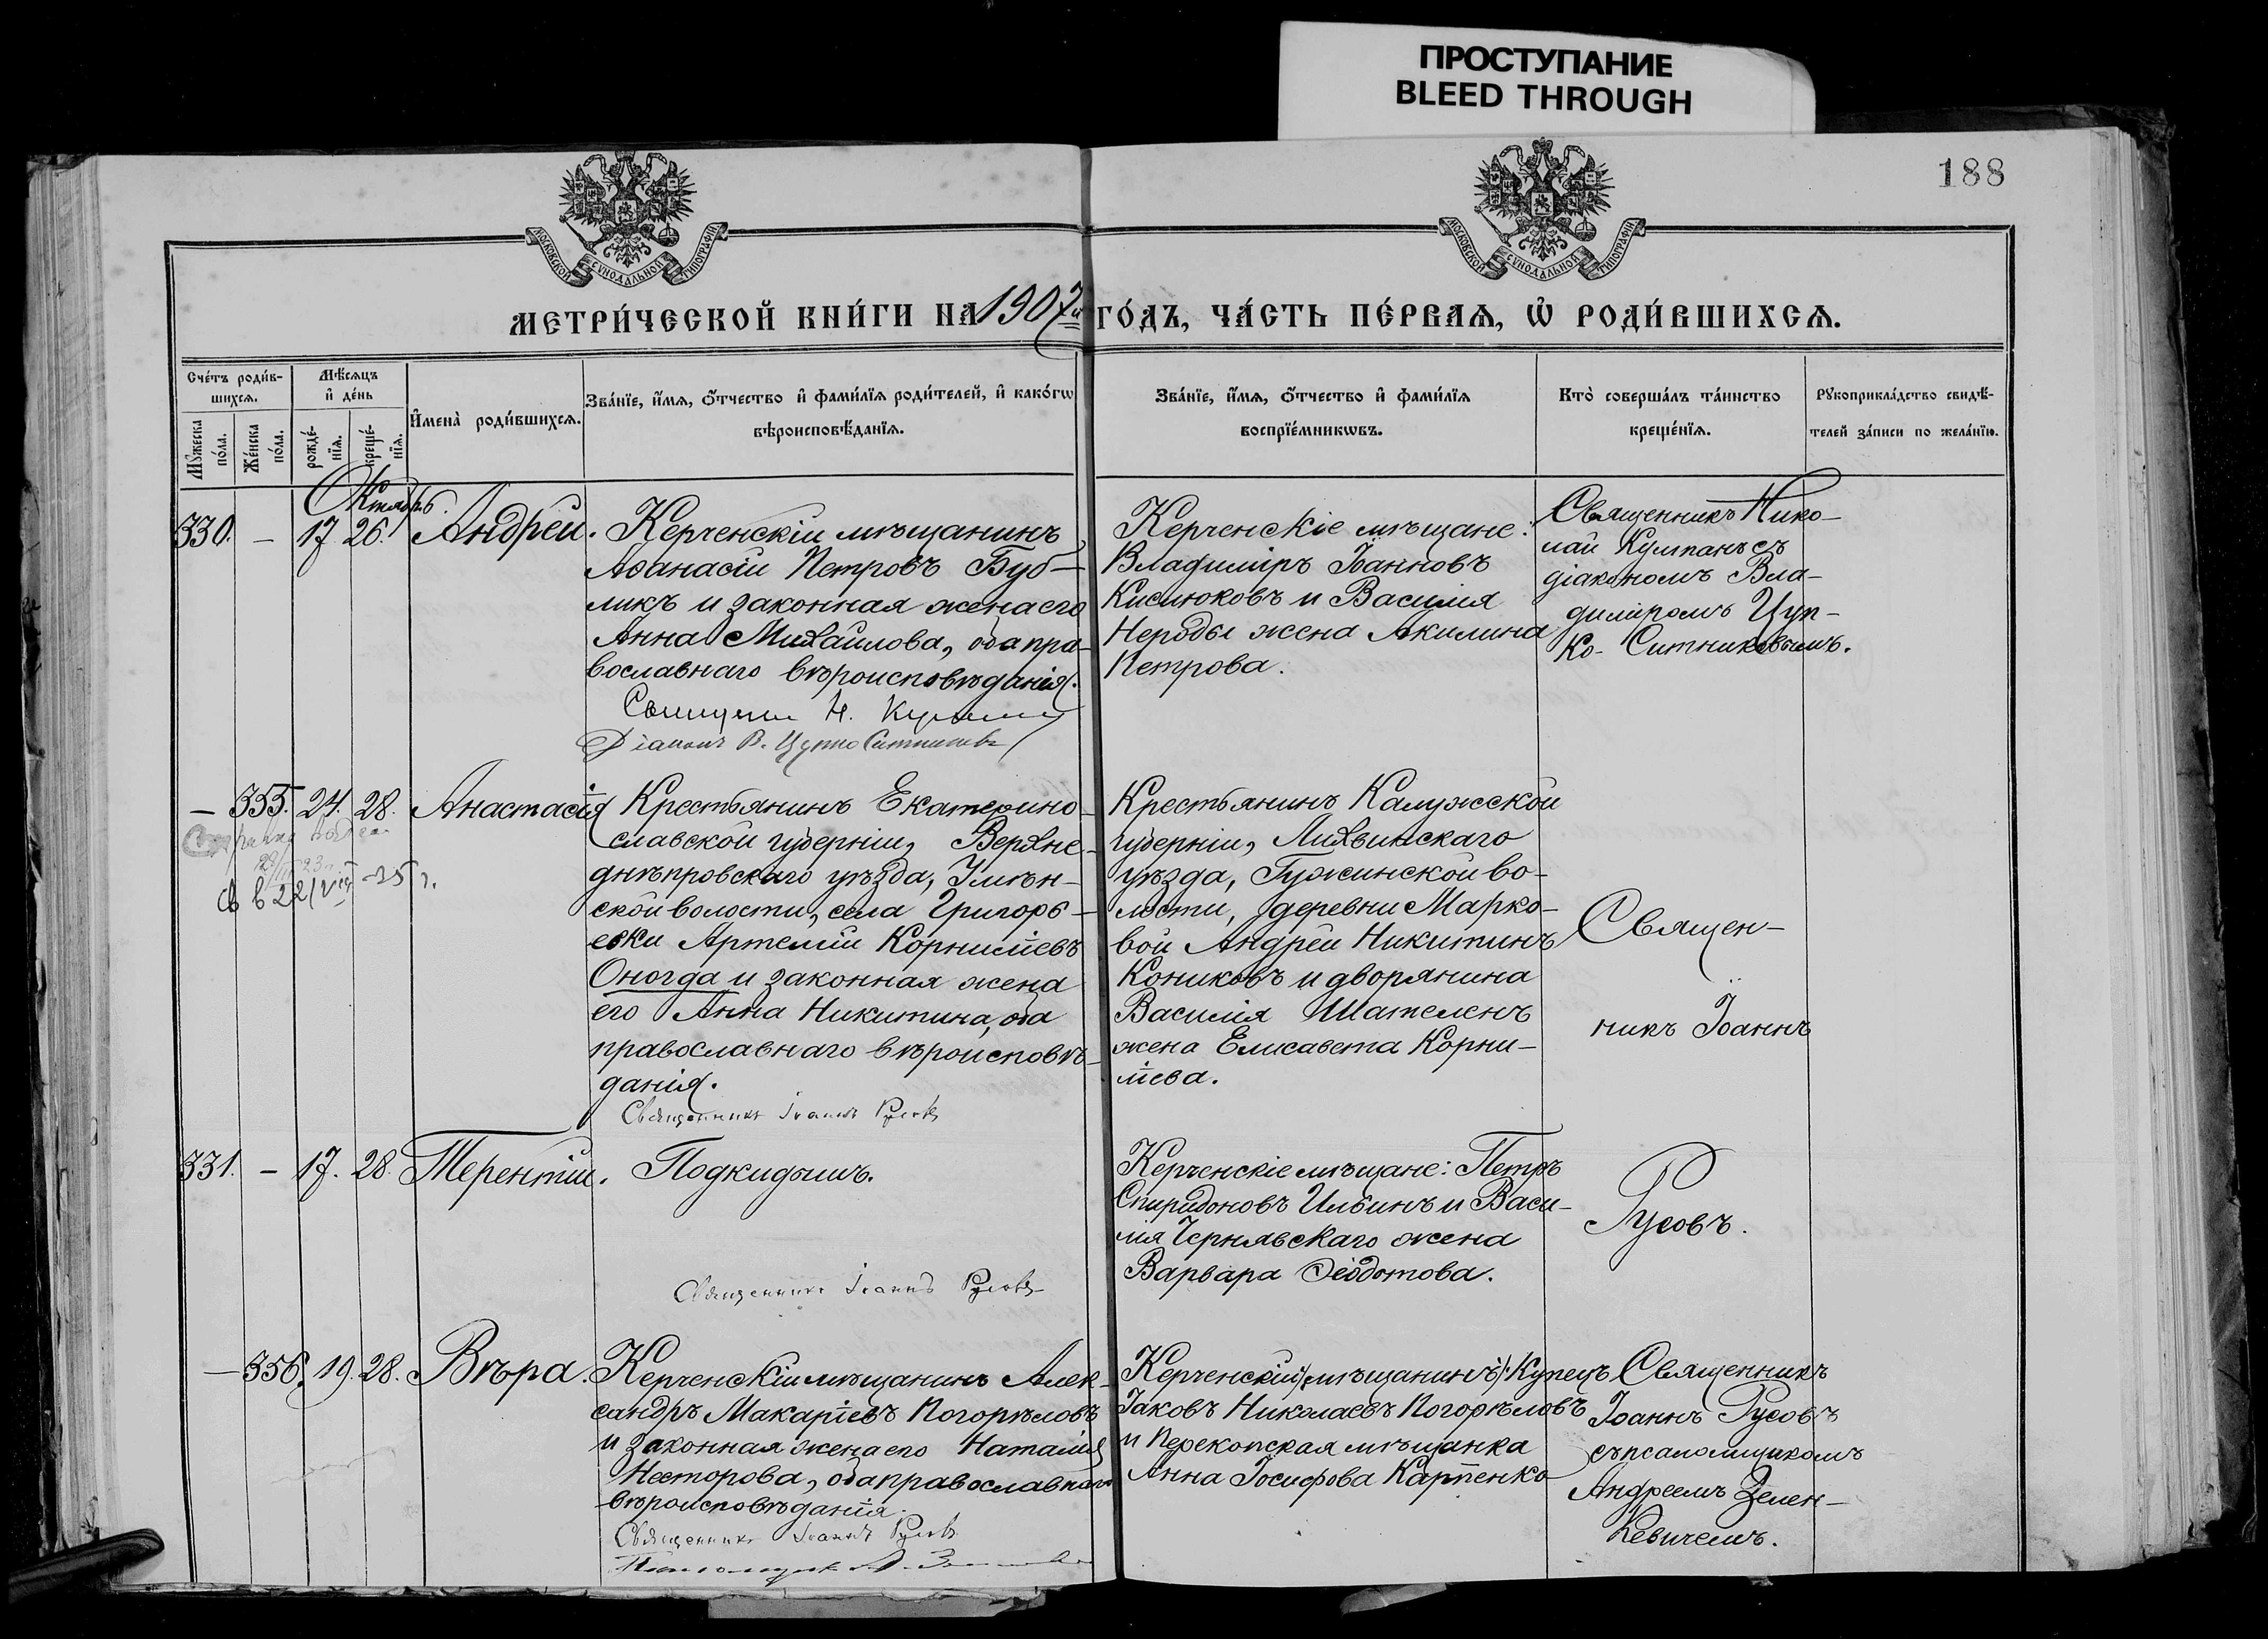 ПРОСТУПАНИЕ
BLEED THROUGH
188
МОСКОВСКОЙ СѴНОДАЛЬНОЙ ТИПОГРАФІИ
МОСКОВСКОЙ СѴНОДАЛЬНОЙ ТИПОГРАФІИ
МЕТРИ́ЧЕСКОЙ КНИ́ГИ НА 1907й ГО́ДЪ, ЧА́СТЬ ПЕ́РВАѦ, Ѡ҆ РОДИ́ВШИХСѦ.
Сче́тъ роди́в-
шихсѧ.
Мꙋ́жеска по́ла.
Же́нска по́ла.
Мѣ́сѧцъ
и҆ де́нь
рожде́-
нїѧ.
креще́-
нїѧ.
И҆мена̀ роди́вшихсѧ.
Зва́нїе, и҆́мѧ, ѻ҆́тчество и҆ фами́лїѧ роди́телей, и҆ како́гѡ
вѣроисповѣ́данїѧ.
Зва́нїе, и҆́мѧ, ѻ҆́тчество и҆ фами́лїѧ
воспрїе́мникѡвъ.
Кто̀ соверша́лъ та́инство
креще́нїѧ.
Рꙋкоприкла́дство свидѣ́-
телей за́писи по жела́нїю.
Октябрь.
330. – 17 26. Андрей.
Керченскій мѣщанинъ
Аѳанасій Петровъ Буб-
ликъ и законная жена его
Анна Михайлова, оба пра-
вославнаго вѣроисповѣданія.
Священникъ Н. Кулпанъ
Діаконъ В. Цупко Ситниковъ
Керченскіе мѣщане:
Владиміръ Іоанновъ
Кислюковъ и Василія
Нероды жена Акилина
Петрова.
Священникъ Нико-
лай Кулпанъ съ
діакономъ Вла-
диміромъ Цуп-
ко-Ситниковымъ.
– 355. 24. 28. Анастасія
22/VIII–25 г.
Крестьянинъ Екатерино-
славской губерніи, Верхне-
днѣпровскаго уѣзда, Імѣн-
ской волости, села Григорь-
евки Артемій Корниліевъ
Оногда и законная жена
его Анна Никитина, оба
православнаго вѣроисповѣ-
данія.
Священникъ Іоаннъ Русовъ
Крестьянинъ Калужской
губерніи, Лихвинскаго
уѣзда, Гужинской во-
лости, деревни Марко-
вой Андрей Никитинъ
Кониковъ и дворянина
Василія Шателенъ
жена Елисавета Корни-
ліева.
Священ-
никъ Іоаннъ
331. – 17. 28. Терентій.
Подкидышъ.
Священникъ Іоаннъ Русовъ
Керченскіе мѣщане: Петръ
Спиридоновъ Ильинъ и Васи-
лія Чернявскаго жена
Варвара Ѳеодотова.
Русовъ.
– 356. 19. 28. Вѣра.
Керченскій мѣщанинъ Алек-
сандръ Макаріевъ Погорѣловъ
и законная жена его Наталія
Несторова, оба православнаго
вѣроисповѣданія.
Священникъ Іоаннъ Русовъ
Псаломщикъ А.
Керченскій (мѣщанинъ) Купецъ
Іаковъ Николаевъ Погорѣловъ
и Перекопская мѣщанка
Анна Іосифова Карпенко
Священникъ
Іоаннъ Русовъ
съ псаломщикомъ
Андреемъ Зелен-
кевичемъ.